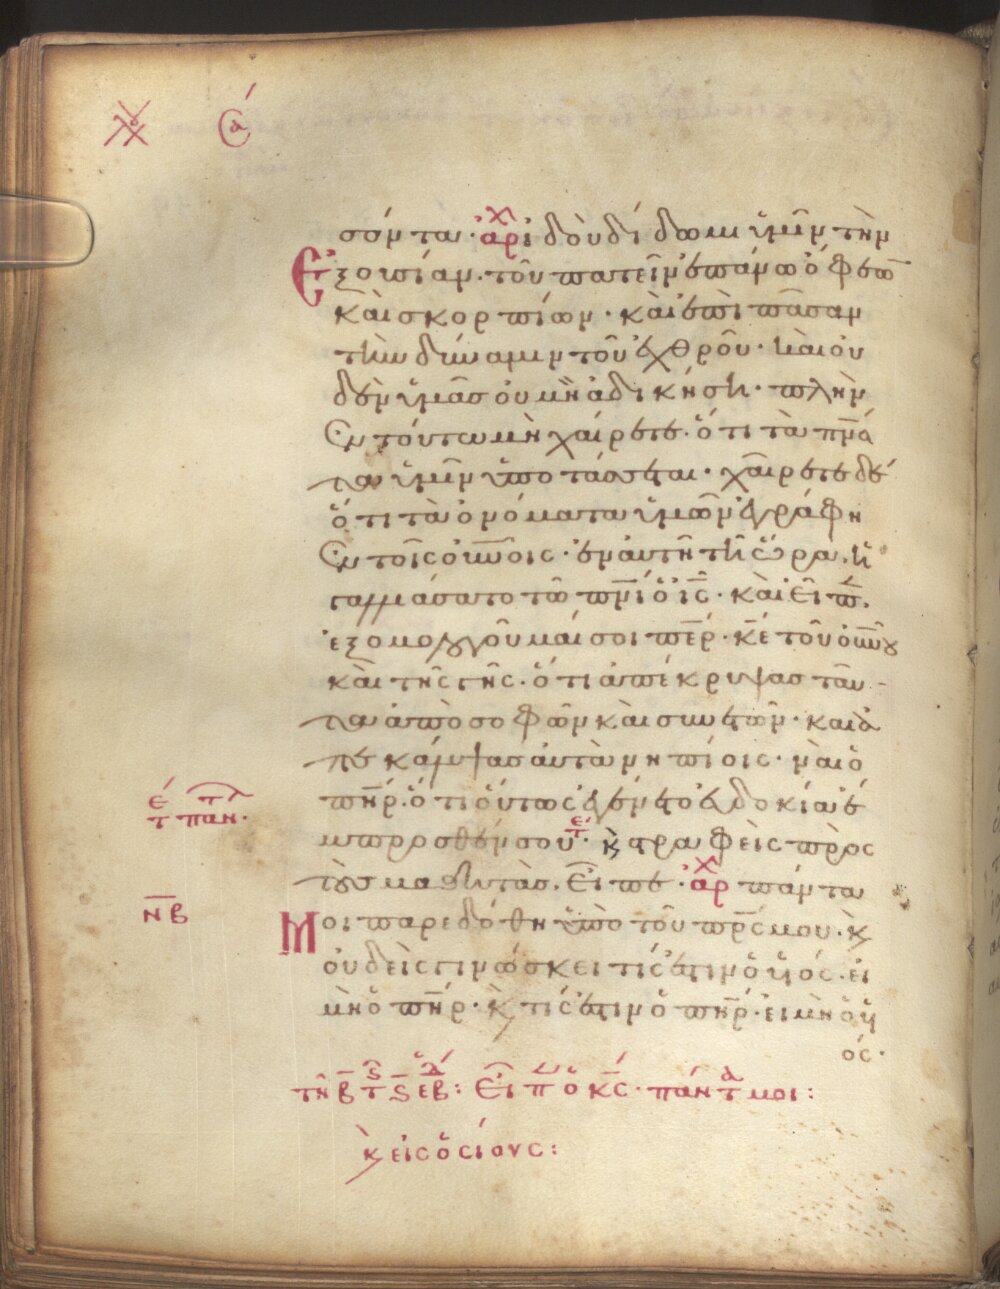 σόντα· ἀρ͂χ ἰδοὺ δίδωμι ὑμῖν τὴν
ἐξουσίαν· τοῦ πατεῖν ἐπάνω ὄφεω̅
καὶ σκορπίων· καὶ ἐπὶ πᾶσαν
τὴν δύναμιν τοῦ ἐχθροῦ· καὶ οὐ
δὲν ὑμᾶς οὐ μὴ ἀδικήσῃ· πλὴν
ἐν τούτω μὴ χαίρετε· ὅτι τὰ πν̅ά
τα ὑμῖν ὑποτάσσεται· χαίρετε δέ
ὅτι τὰ ὀνόματα ὑμῶν ἐγράφη
ἐν τοῖς οὐ̅νοις· ἐν αὐτῆ τῆ ὥρα ἠ
γαλλιάσατο τῶ πν̅ι ὁ ι̅ς· καὶ εἶπ̅.
ἐξομολογοῦμαί σοι πε̅ρ· κ̅ε τοῦ οὐ̅νου
καὶ τῆς γῆς· ὅτι ἀπέκρυψας ταῦ-
τα ἀπὸ σοφῶν καὶ συνετῶν· καὶ ἀ
πεκάλυψας αὐτὰ νηπίοις· ναὶ ὁ
πη̅ρ· ὅτι οὕτως ἐγένετο εὐδοκία ἔ
μπροσθέν σου· κ̀ στραφεὶς πρὸς
τοὺς μαθητὰς. εἶπε· ἀρ͂χ πάντα
μοι παρεδόθη ὑπὸ τοῦ πρ̅ς μου· κ̀
οὐδεὶς γινώσκει τίς ἐστιν ὁ υἱός· εἰ
μὴ ὁ πη̅ρ· κ̀ τίς ἐστιν ὁ πη̅ρ· εἰ μὴ ὁ υἱ
ός·
ν̅β
τῆ β̅ τ ς̅ ἑβ: εἶπ ὁ κ̅ς· πάντ μοι:
κ̀ εἰς ὁσίους: